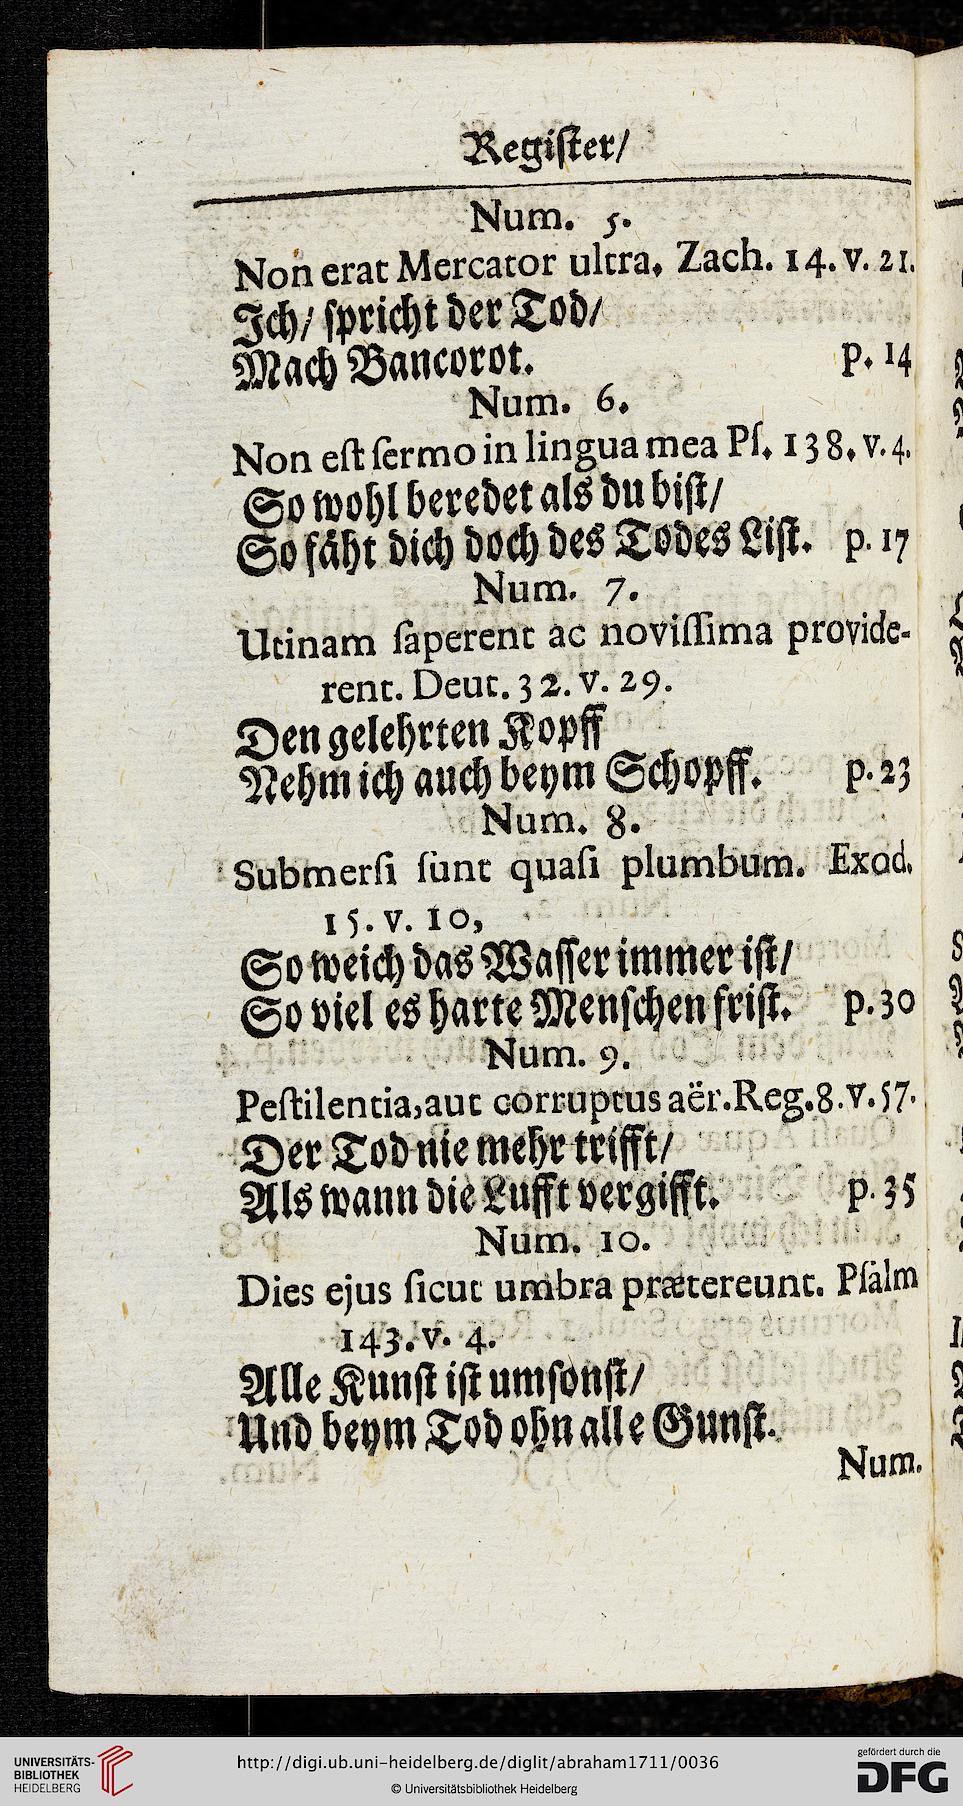 Regiſter/
Num. 5.
Non erat Mercator ultra. Zach. 14. v. 21.
Ich/ ſpricht der Tod/
Mach Bancorot. p. 14
Num. 6.
Non eſt ſermo in lingua mea Pſ. 138. v. 4.
So wohl beredet als du biſt/
So fäht dich doch des Todes Liſt. p. 17
Num. 7.
Utinam ſaperent ac noviſſima provide-
rent. Deut. 32. v. 29.
Den gelehrten Kopff
Nehm ich auch beym Schopff. p. 23
Num. 8.
Submerſi ſunt quaſi plumbum. Exod.
15. v. 10,
So weich das Waſſer immer iſt/
So viel es harte Menſchen friſt. p. 30
Num. 9.
Peſtilentia, aut corruptus aër. Reg. 8. v. 57.
Der Tod nie mehr trifft/
Als wann die Lufft vergifft. p. 35
Num. 10.
Dies ejus ſicut umbra prætereunt. Pſalm
143. v. 4.
Alle Kunſt iſt umſonſt/
Und beym Tod ohn alle Gunſt.
Num.
UNIVERSITÄTS-
BIBLIOTHEK
HEIDELBERG
http://digi.ub.uni-heidelberg.de/diglit/abraham1711/0036
© Universitätsbibliothek Heidelberg
gefördert durch die
DFG